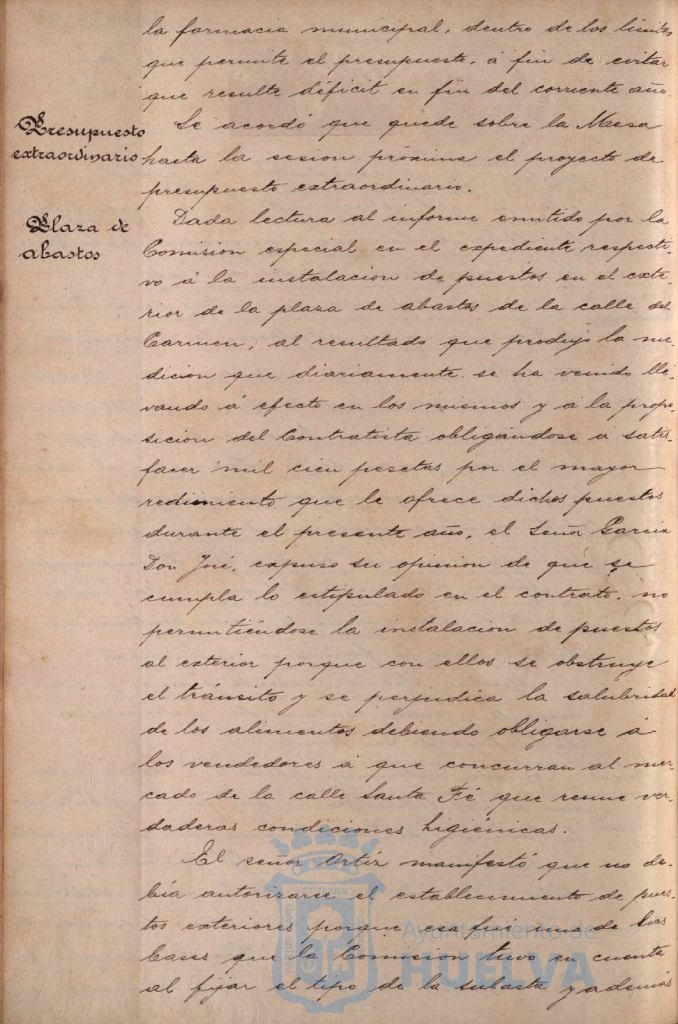 la farmacia municipal, dentro de los límites
que permite el presupuesto, á fin de evitar
que resulte déficit en fin del corriente año.
Presupuesto
extraordinario
Se acordó que quede sobre la Mesa
hasta la sesion próxima el proyecto de
presupuesto extraordinario.
Plaza de
abastos
Dada lectura al informe emitido por la
Comision especial en el expediente respecti-
vo á la instalacion de puestos en el exte-
rior de la plaza de abastos de la calle del
Carmen; al resultado que produjo la me-
dicion que diariamente se ha venido lle-
vando á efecto en los mismos y á la propo-
sicion del Contratista obligándose á satis-
facer mil cien pesetas por el mayor
rendimiento que le ofrece dichos puestos
durante el presente año, el Señor Garcia
Don José, expuso su opinion de que se
cumpla lo estipulado en el contrato, no
permitiéndose la instalacion de puestos
al exterior porque con ellos se obstruye
el tránsito y se perjudica la salubridad
de los alimentos debiendo obligarse á
los vendedores á que concurran al mer-
cado de la calle Santa Fé que reune ver-
daderas condiciones higiénicas.
El señor Ortiz manifestó que no de-
bia autorizarse el establecimiento de pues-
tos exteriores porque esa fué una de las
bases que la Comision tuvo en cuenta
al fijar el tipo de la subasta y además
Ayuntamiento de
HUELVA